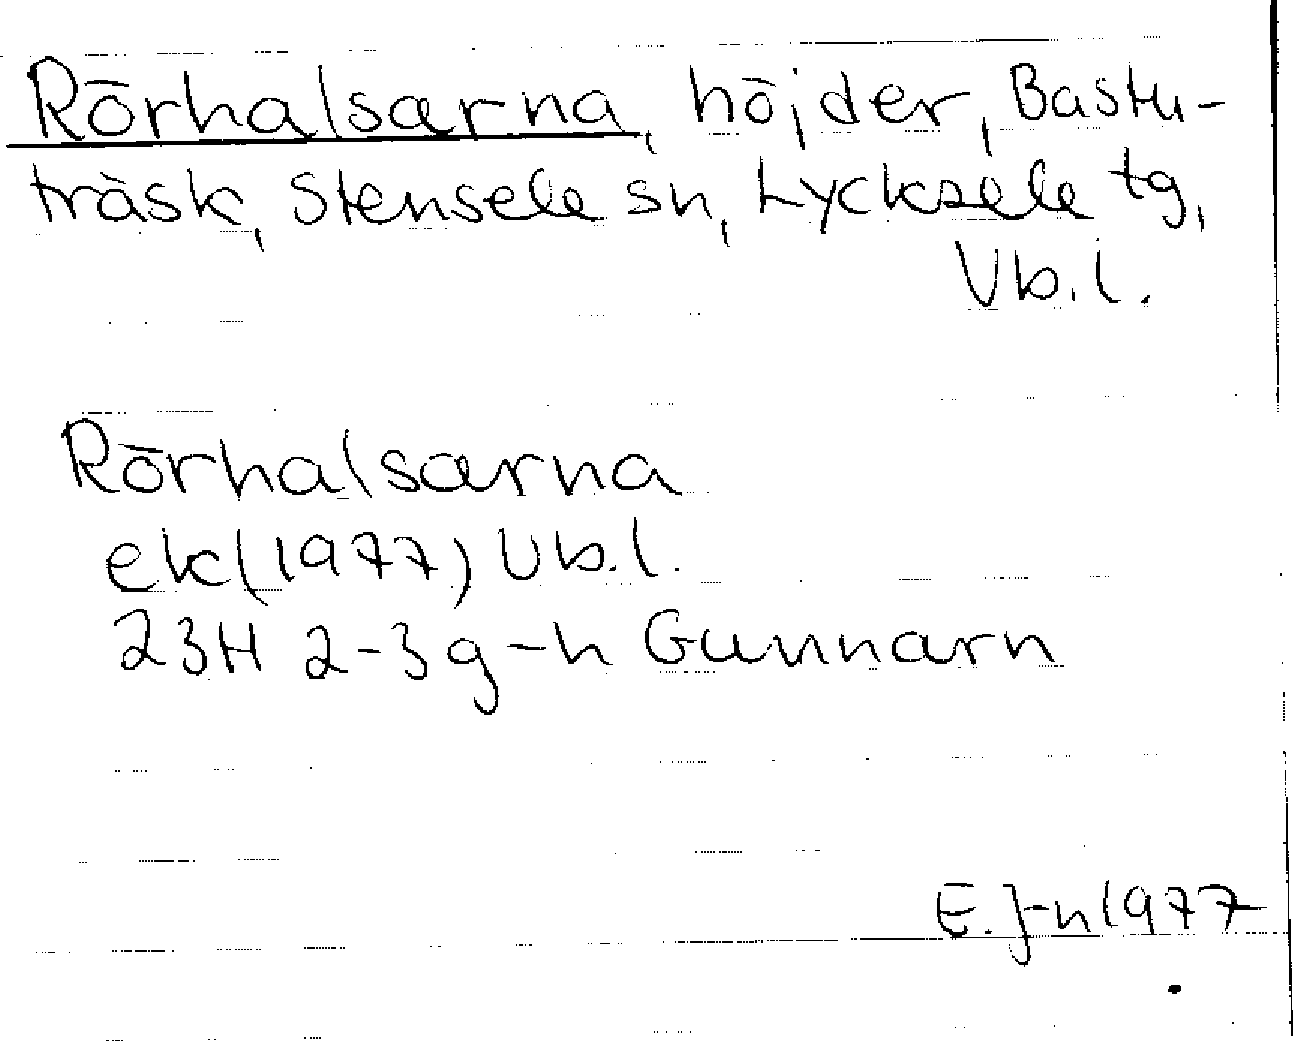 Rörhalsarna, höjder, Bastu-
träsk, Stensele sn, Lycksele tg,
Vb.l.
Rörhalsarna
ek(1977) Vb.l.
23H 2-3g-h Gunnarn
E. J-n 1977